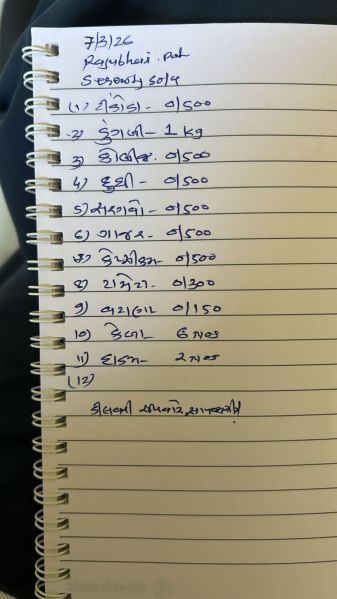 7/3/26
Rajubhai. Pat
Serenity sola
(1) ટીંડોળા - 0/500
2) ડુંગળી - 1 kg
3) કોબીજ. 0/500
4) દુધી - 0/500
5) સરગવો - 0/500
6) ગાજર - 0/500
7) કેપ્સીકમ - 0/500
8) ટામેટા - 0/300
9) વટાણા 0/150
10) કેળા 6 નંગ
11) દાડમ - 2 નંગ
(12)